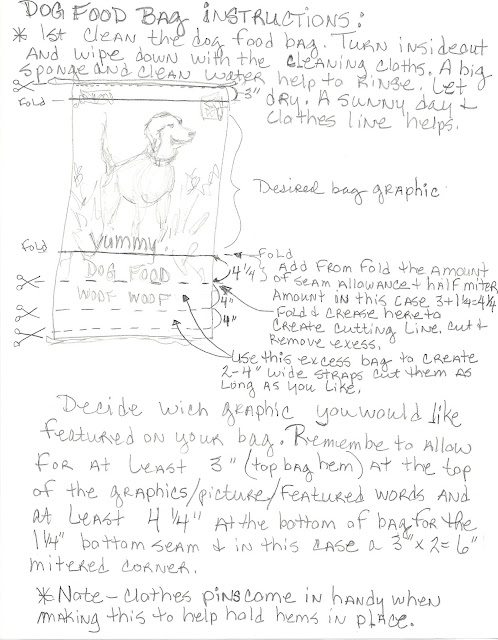 DOG FOOD BAG INSTRUCTIONS:
* 1st clean the dog food bag. Turn insideout
And wipe down with the cleaning cloths. A big
sponge and clean water help to Rinse. Let
dry. A sunny day &
clothes line helps.
3"
FOLD
Desired bag graphic
Yummy
FOLD
FOLD
DOG FOOD
WOOF WOOF
4 1/4"
4"
4"
ADD From Fold the Amount
of seam Allowance & half miter
Amount in this case 3+1 1/4=4 1/4
Fold & crease here to
Create cutting line. Cut &
Remove exess.
Use this excess bag to create
2-4" wide straps cut them as
long as you like.
Decide wich graphic you would like
featured on your bag. Remembe to Allow
For at Least 3" (top bag hem) At the top
of the graphics/picture/Featured words And
at Least 4 1/4" At the bottom of bag for the
1 1/4" bottom seam & in this case a 3" x 2 = 6"
mitered corner.
*Note - clothes pins come in handy when
making this to help hold hems in place.